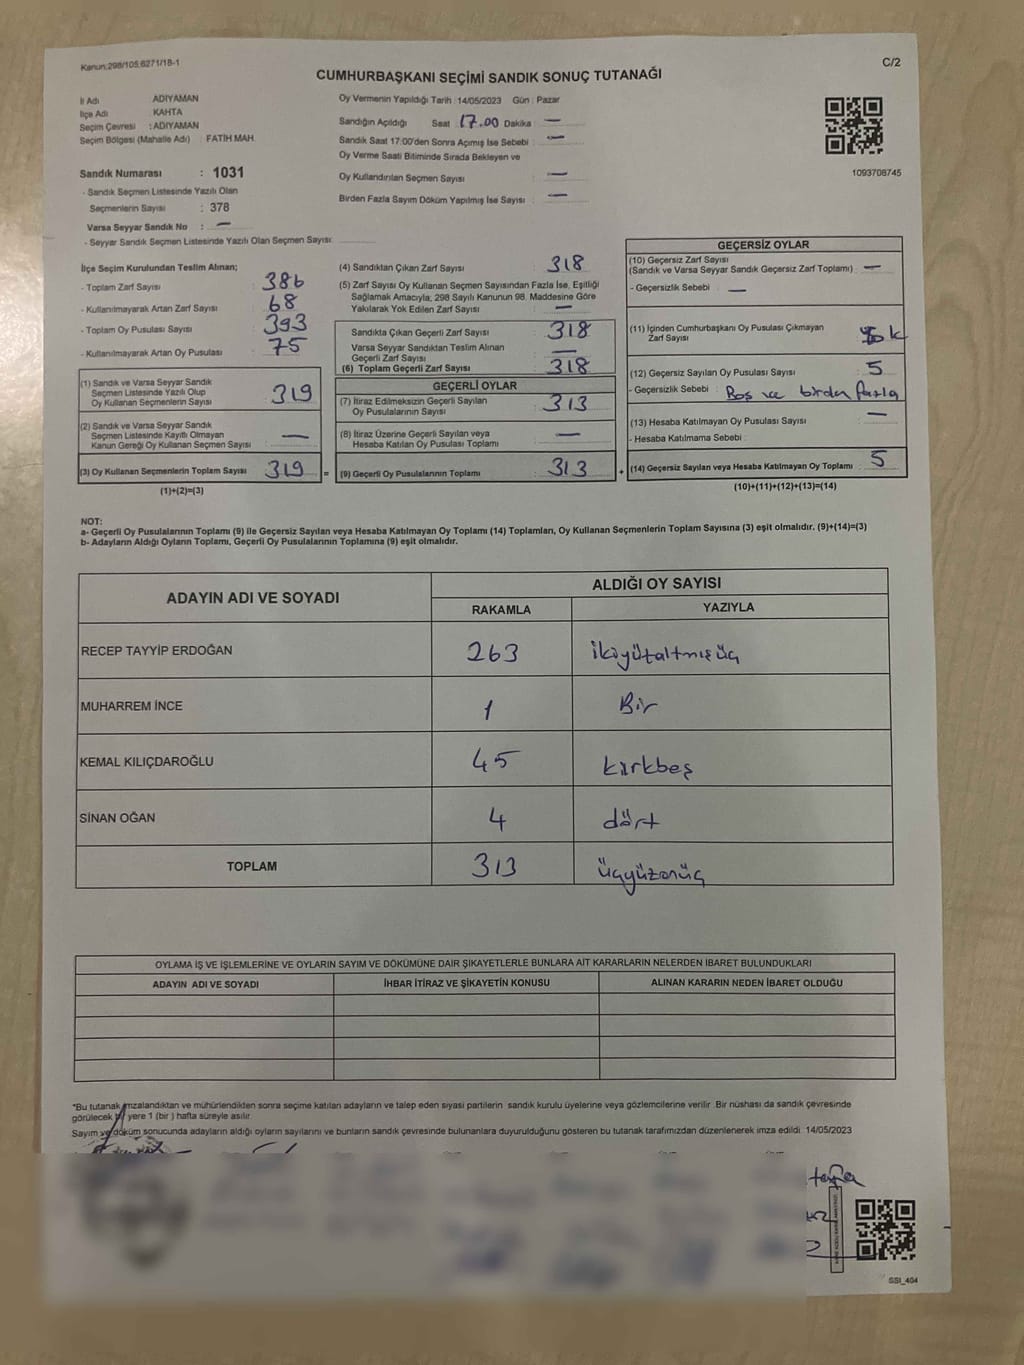 Kanun;298/105;6271/18-1
C/2
CUMHURBAŞKANI SEÇİMİ SANDIK SONUÇ TUTANAĞI
İl Adı ADIYAMAN
İlçe Adı : KAHTA
Seçim Çevresi : ADIYAMAN
Seçim Bölgesi (Mahalle Adı) : FATİH MAH.
Sandık Numarası : 1031
- Sandık Seçmen Listesinde Yazılı Olan
Seçmenlerin Sayısı : 378
Varsa Seyyar Sandık No : —
- Seyyar Sandık Seçmen Listesinde Yazılı Olan Seçmen Sayısı:
Oy Vermenin Yapıldığı Tarih :14/05/2023 Gün : Pazar
Sandığın Açıldığı Saat 17.00 Dakika —
Sandık Saat 17:00'den Sonra Açımış İse Sebebi : —
Oy Verme Saati Bitiminde Sırada Bekleyen ve
Oy Kullandırılan Seçmen Sayısı —
Birden Fazla Sayım Döküm Yapılmış İse Sayısı : —
1093708745
İlçe Seçim Kurulundan Teslim Alınan;
- Toplam Zarf Sayısı : 386
- Kullanılmayarak Artan Zarf Sayısı : 68
- Toplam Oy Pusulası Sayısı : 393
- Kullanılmayarak Artan Oy Pusulası : 75
(1) Sandık ve Varsa Seyyar Sandık
Seçmen Listesinde Yazılı Olup
Oy Kullanan Seçmenlerin Sayısı : 319
(2) Sandık ve Varsa Seyyar Sandık
Seçmen Listesinde Kayıtlı Olmayan
Kanun Gereği Oy Kullanan Seçmen Sayısı : —
(3) Oy Kullanan Seçmenlerin Toplam Sayısı : 319 =
(1)+(2)=(3)
(4) Sandıktan Çıkan Zarf Sayısı : 318
(5) Zarf Sayısı Oy Kullanan Seçmen Sayısından Fazla İse, Eşitliği
Sağlamak Amacıyla; 298 Sayılı Kanunun 98. Maddesine Göre
Yakılarak Yok Edilen Zarf Sayısı : —
Sandıkta Çıkan Geçerli Zarf Sayısı : 318
Varsa Seyyar Sandıktan Teslim Alınan
Geçerli Zarf Sayısı : —
(6) Toplam Geçerli Zarf Sayısı : 318
GEÇERLİ OYLAR
(7) İtiraz Edilmeksizin Geçerli Sayılan
Oy Pusulalarının Sayısı : 313
(8) İtiraz Üzerine Geçerli Sayılan veya
Hesaba Katılan Oy Pusulası Toplamı : —
(9) Geçerli Oy Pusulalarının Toplamı : 313 +
GEÇERSİZ OYLAR
(10) Geçersiz Zarf Sayısı
(Sandık ve Varsa Seyyar Sandık Geçersiz Zarf Toplamı) : —
- Geçersizlik Sebebi : —
(11) İçinden Cumhurbaşkanı Oy Pusulası Çıkmayan
Zarf Sayısı
(12) Geçersiz Sayılan Oy Pusulası Sayısı : 5
- Geçersizlik Sebebi : Boş ve birden fazla
(13) Hesaba Katılmayan Oy Pusulası Sayısı : —
- Hesaba Katılmama Sebebi :
(14) Geçersiz Sayılan veya Hesaba Katılmayan Oy Toplamı : 5
(10)+(11)+(12)+(13)=(14)
NOT:
a- Geçerli Oy Pusulalarının Toplamı (9) ile Geçersiz Sayılan veya Hesaba Katılmayan Oy Toplamı (14) Toplamları, Oy Kullanan Seçmenlerin Toplam Sayısına (3) eşit olmalıdır. (9)+(14)=(3)
b- Adayların Aldığı Oyların Toplamı, Geçerli Oy Pusulalarının Toplamına (9) eşit olmalıdır.
ADAYIN ADI VE SOYADI ALDIĞI OY SAYISI
RAKAMLA YAZIYLA
RECEP TAYYİP ERDOĞAN 263 ikiyüzaltmışüç
MUHARREM İNCE 1 Bir
KEMAL KILIÇDAROĞLU 45 kırkbeş
SİNAN OĞAN 4 dört
TOPLAM 313 üçyüzonüç
OYLAMA İŞ VE İŞLEMLERİNE VE OYLARIN SAYIM VE DÖKÜMÜNE DAİR ŞİKAYETLERLE BUNLARA AİT KARARLARIN NELERDEN İBARET BULUNDUKLARI
ADAYIN ADI VE SOYADI İHBAR İTİRAZ VE ŞİKAYETİN KONUSU ALINAN KARARIN NEDEN İBARET OLDUĞU
*Bu tutanak imzalandıktan ve mühürlendikten sonra seçime katılan adayların ve talep eden siyasi partilerin sandık kurulu üyelerine veya gözlemcilerine verilir. Bir nüshası da sandık çevresinde
görülecek bir yere 1 (bir ) hafta süreyle asılır.
Sayım ve döküm sonucunda adayların aldığı oyların sayılarını ve bunların sandık çevresinde bulunanlara duyurulduğunu gösteren bu tutanak tarafımızdan düzenlenerek imza edildi. 14/05/2023
SSI_404